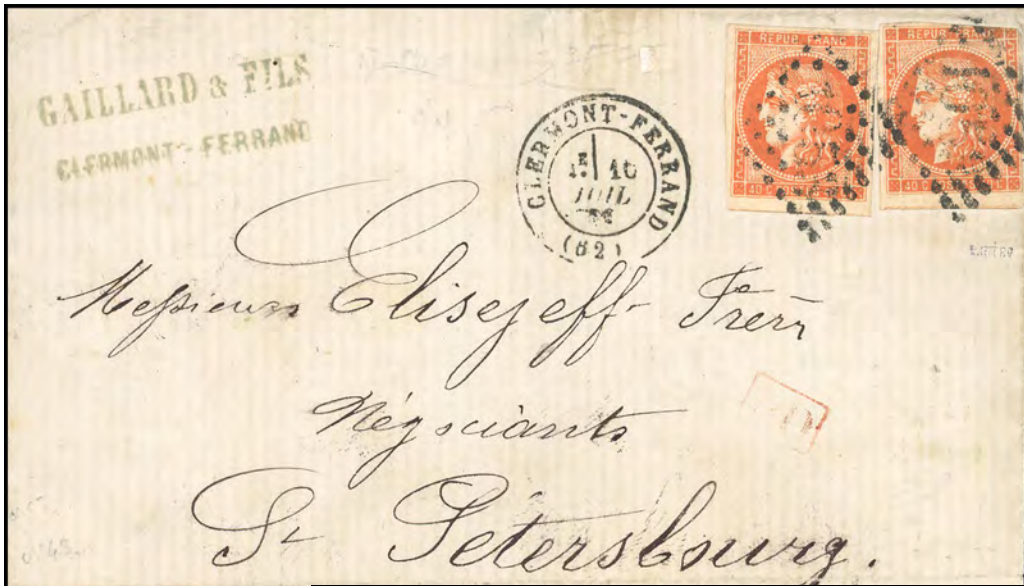 GAILLARD & FILS
CLERMONT-FERRAND
CLERMONT-FERRAND
1E 16
JUIL
(62)
REPUB FRANC
40 C
REPUB FRANC
40 C POSTE
Messieurs Elisejeff Frères
Négociants
St Petersbourg.